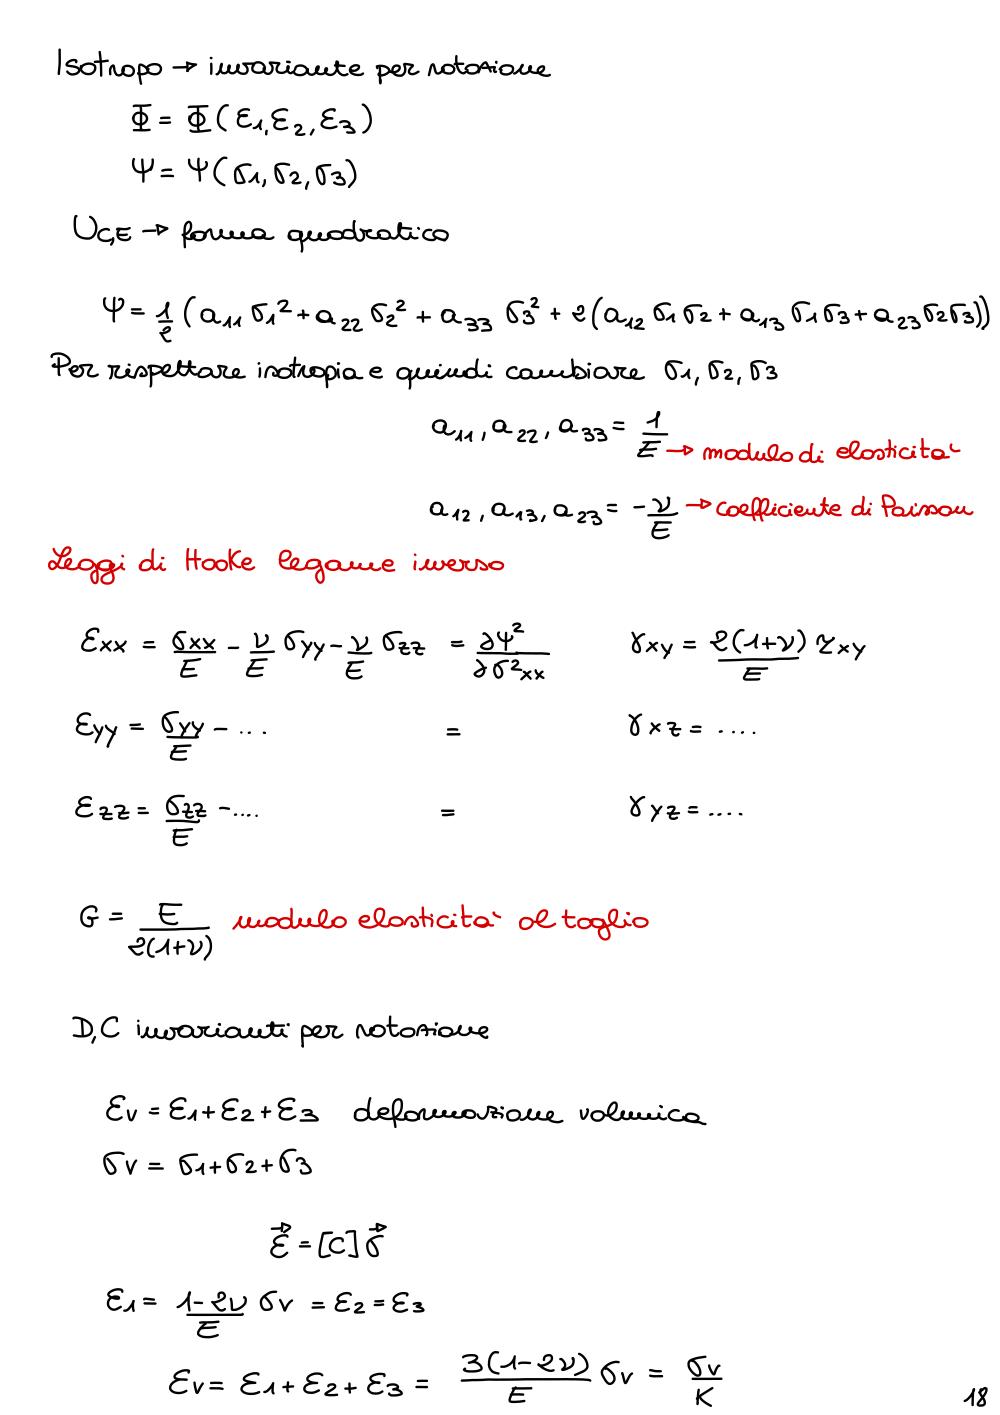 Isotropo → invariante per rotazione
Φ = Φ(ε1, ε2, ε3)
Ψ = Ψ(σ1, σ2, σ3)
UC,E → forma quadratica
Ψ = 1/2 (a11 σ1² + a22 σ2² + a33 σ3² + 2(a12 σ1σ2 + a13 σ1σ3 + a23 σ2σ3))
Per rispettare isotropia e quindi cambiare σ1, σ2, σ3
a11, a22, a33 = 1/E → modulo di elasticità
a12, a13, a23 = -ν/E → coefficiente di Poisson
Leggi di Hooke legame inverso
εxx = σxx/E - ν/E σyy - ν/E σzz = ∂Ψ²/∂σ²xx γxy = 2(1+ν)/E τxy
εyy = σyy/E - .... = γxz = ....
εzz = σzz/E - .... = γyz = ....
G = E/2(1+ν) modulo elasticità al taglio
D,C invarianti per rotazione
εv = ε1 + ε2 + ε3 deformazione volumica
σv = σ1 + σ2 + σ3
ε⃗ = [C] σ⃗
ε1 = 1-2ν/E σv = ε2 = ε3
εv = ε1 + ε2 + ε3 = 3(1-2ν)/E σv = σv/K
18